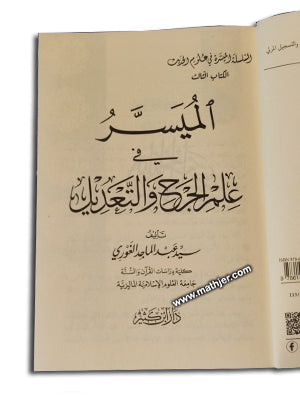 السلسلة الميسرة في علوم الحديث
الكتاب الثالث
الميسَّرُ
في
علم الجرح والتعديل
تأليف
سيد عبد الماجد الغوري
كلية دراسات القرآن والسنة
جامعة العلوم الإسلامية الماليزية
www.mathjer.com
دار ابن كثير
والتسجيل المرئي